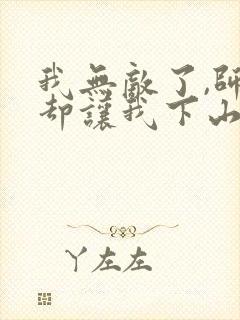 我無敵了,師
卻讓我下山
丫左左